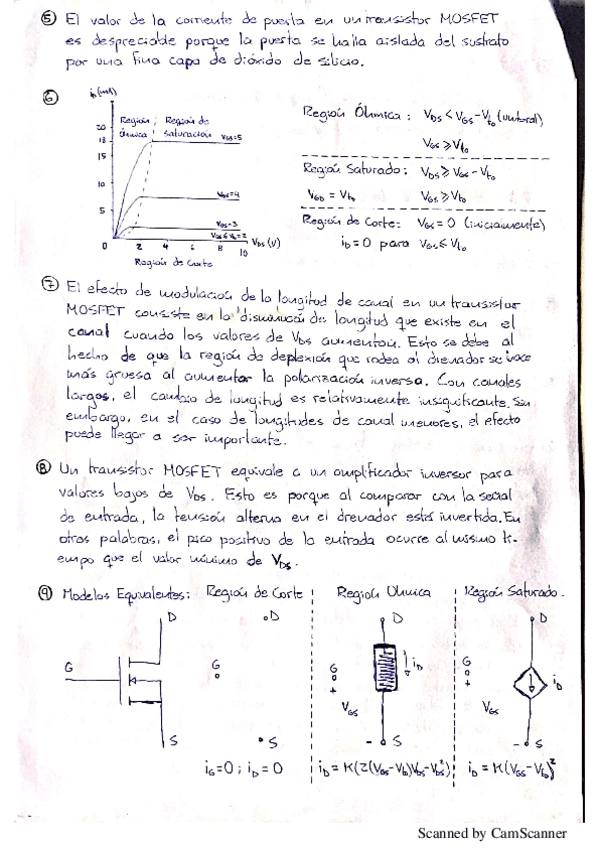 ⑤ El valor de la corriente de puerta en un transistor MOSFET
es despreciable porque la puerta se halla aislada del sustrato
por una fina capa de dióxido de silicio.
⑥
Región Óhmica : VDS < VGS - Vto (umbral)
VGS ≥ Vto
Región Saturado : VDS ≥ VGS - Vto
VGD = Vto VGS ≥ Vto
Región de Corte: VGS = 0 (inicialmente)
iD = 0 para VGS ≤ Vto
iD (mA)
20
18
15
10
5
0 2 4 6 8 10 VDS (V)
Región Óhmica
Región de saturación
VGS=5
VGS=4
VGS=3
VGS ≤ Vto = 2
Región de Corte
⑦ El efecto de modulación de la longitud de canal en un transistor
MOSFET consiste en la disminución de longitud que existe en el
canal cuando los valores de VDS aumentan. Esto se debe al
hecho de que la región de deplexión que rodea al drenador se hace
más gruesa al aumentar la polarización inversa. Con canales
largos, el cambio de longitud es relativamente insignificante. Sin
embargo, en el caso de longitudes de canal menores, el efecto
puede llegar a ser importante.
⑧ Un transistor MOSFET equivale a un amplificador inversor para
valores bajos de VDS. Esto es porque al comparar con la señal
de entrada, la tensión alterna en el drenador está invertida. En
otras palabras, el pico positivo de la entrada ocurre al mismo ti-
empo que el valor mínimo de VDS.
⑨ Modelos Equivalentes: Región de Corte Región Óhmica Región Saturado.
D D D D
G G G iD G iD
+ +
VGS VGS
S S - S - S
iG=0 ; iD = 0 iD = K(2(VGS-Vto)VDS-VDS²) iD = K(VGS-Vto)²
Scanned by CamScanner